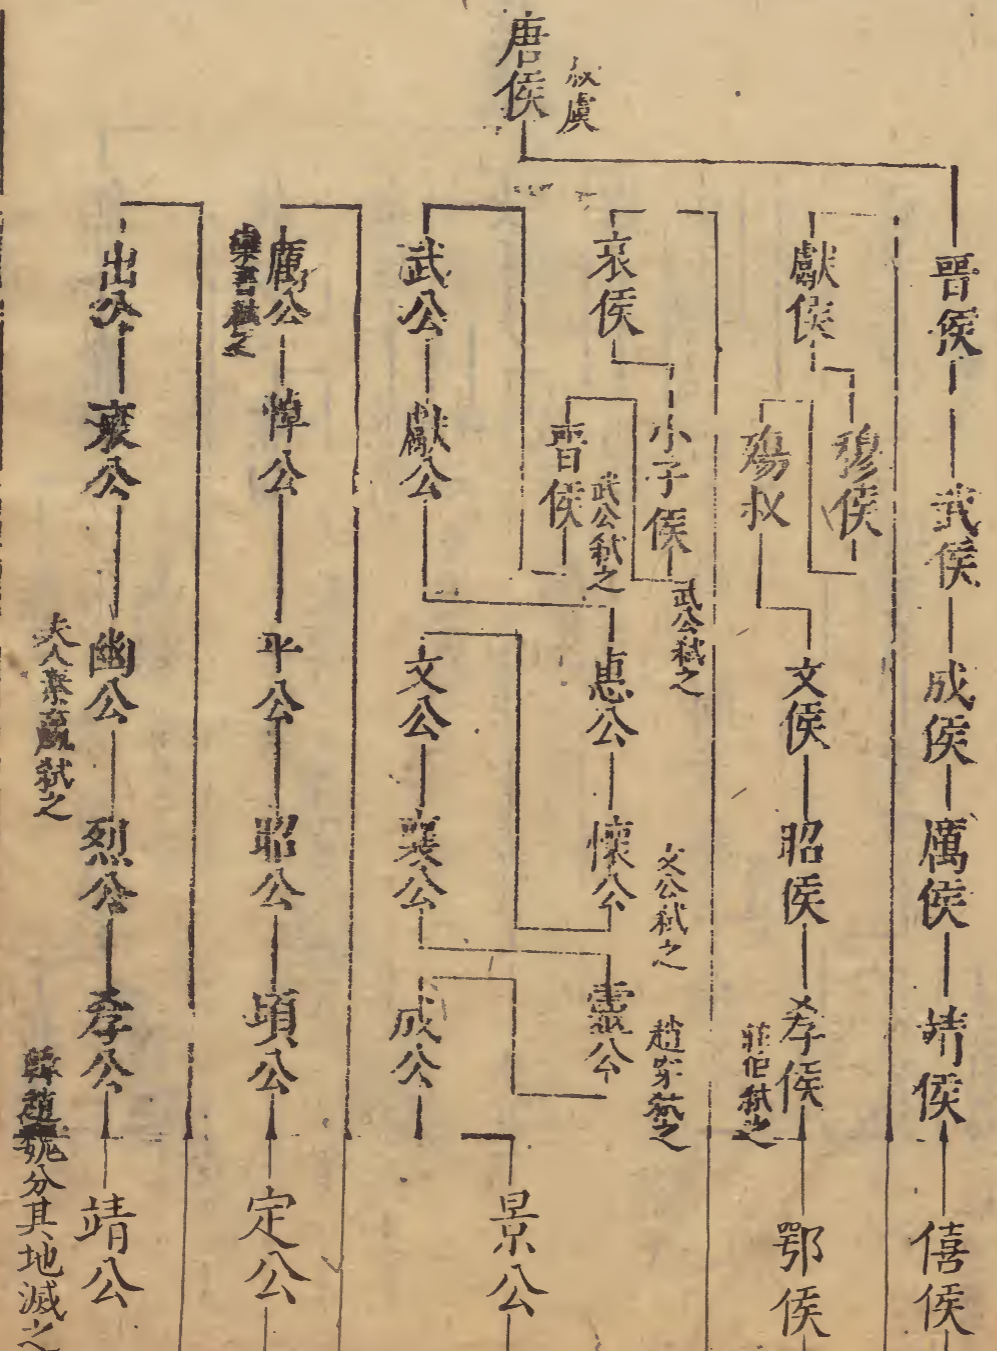 唐侯
叔虞
晋侯
武侯
成侯
厲侯
靖侯
僖侯
獻侯
穆侯
殤叔
文侯
昭侯
孝侯
莊伯弒之
鄂侯
哀侯
小子侯
武公弒之
晋侯
武公弒之
武公
獻公
惠公
懷公
文公弒之
文公
襄公
靈公
趙穿弒之
成公
景公
厲公
欒書弒之
悼公
平公
昭公
頃公
定公
出公
哀公
幽公
夫人秦嬴弒之
烈公
孝公
靖公
韓趙魏分其地滅之